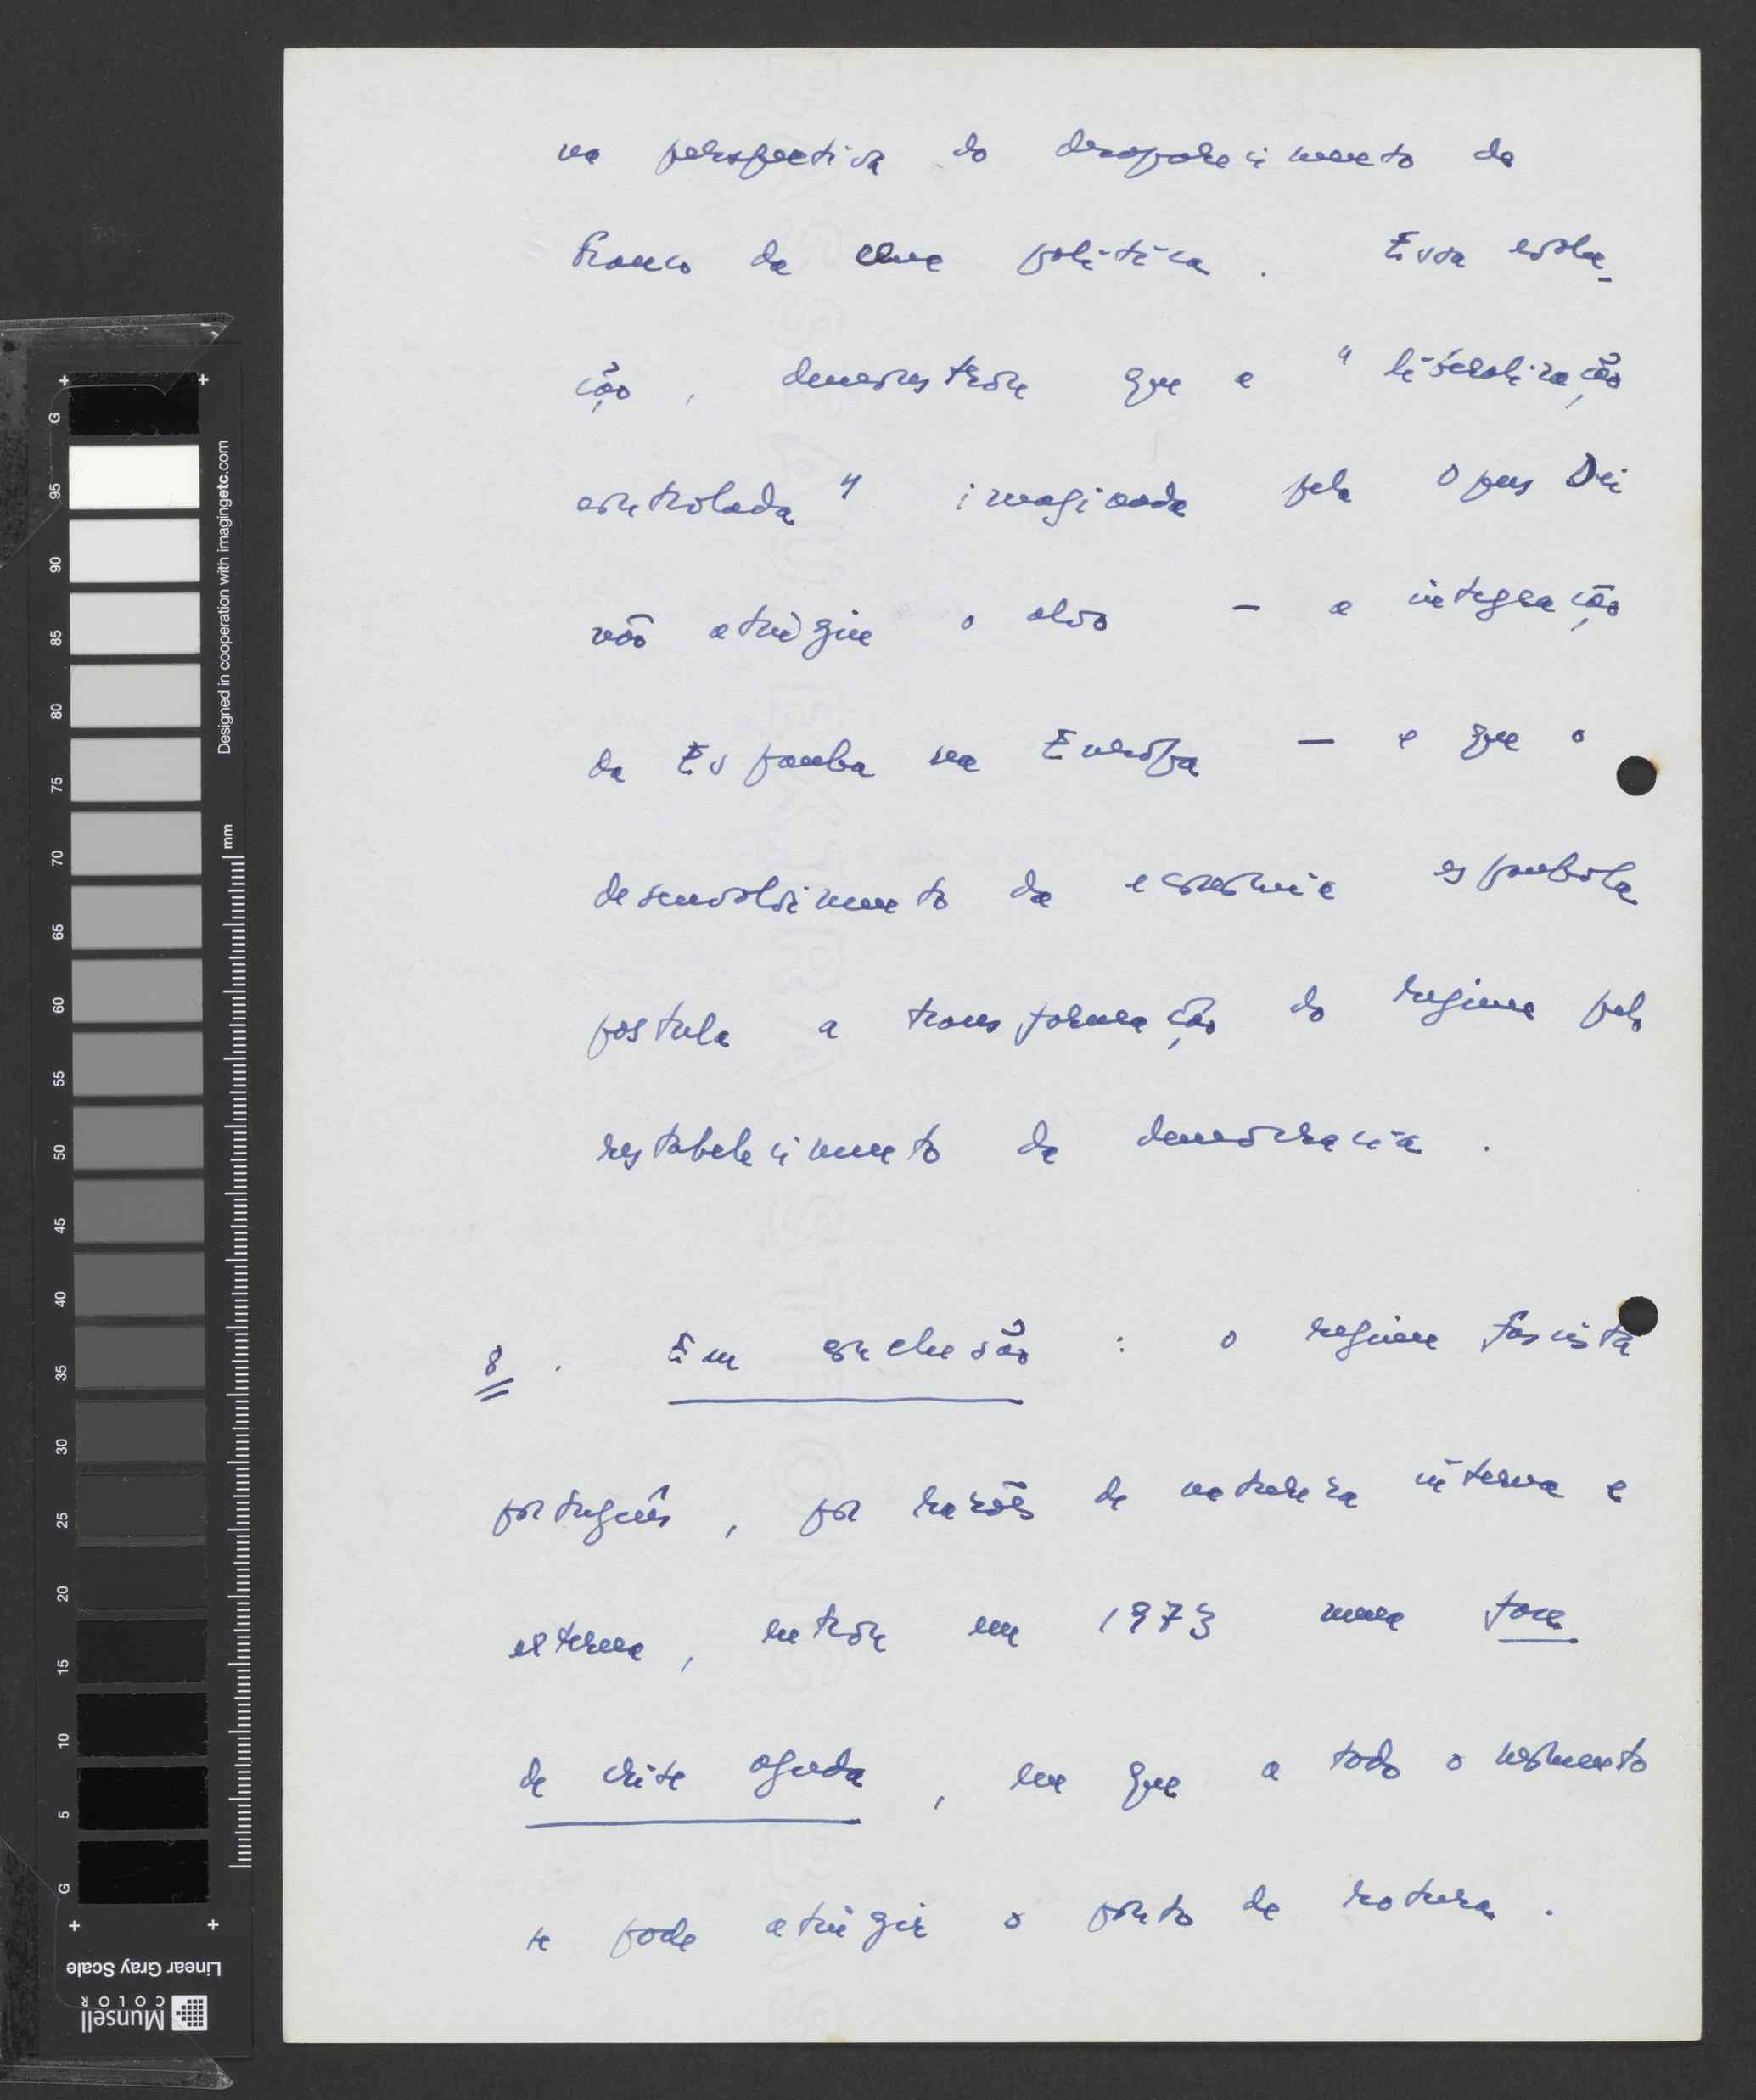 na perspectiva do desaparecimento de
Franco da cena política. Essa evolu-
ção, demonstrou que a "liberalização
controlada" imaginada pela Opus Dei
não atingiu o alvo — a integração
da Espanha na Europa — e que o
desenvolvimento da economia espanhola
postula a transformação do regime pelo
restabelecimento da democracia.
8. Em conclusão: o regime fascista
português, por razões de natureza interna e
externa, entrou em 1973 numa fase
de crise aguda, em que a todo o momento
se pode atingir o ponto de rotura.
G 95 90 85 80 75 70 65 60 55 50 45 40 35 30 25 20 15 10 5 G
Designed in cooperation with imagingetc.com
mm
Linear Gray Scale
Munsell
COLOR